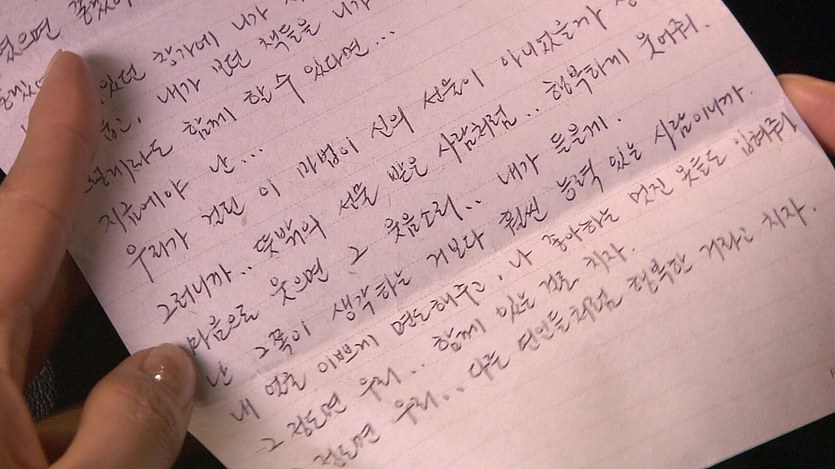 있던 창가에 니가
내가 보던 책들을 니가
함께 할 수 있다면...
지금에야 난...
우리가 걸린 이 마법이 신의 선물이 아니었을까
그러니까.. 뜻밖의 선물 받은 사람처럼.. 행복하게 웃어줘.
마음으로 웃으면 그 웃음소리.. 내가 들을게.
난 그쪽이 생각하는 거보다 훨씬 능력 있는 사람이니까.
내 얼굴 이쁘게 면도해주고, 나 좋아하는 멋진 옷들도 입혀줘
그 정도면 우리.. 함께 있는 걸로 치자.
정도면 우리.. 다른 연인들처럼 행복한 거라고 치자.